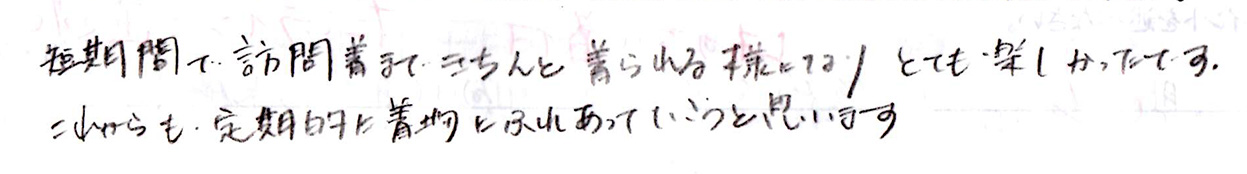 短期間で訪問着まできちんと着られる様になり とても楽しかったです.
これからも定期的に着物にふれあっていこうと思います